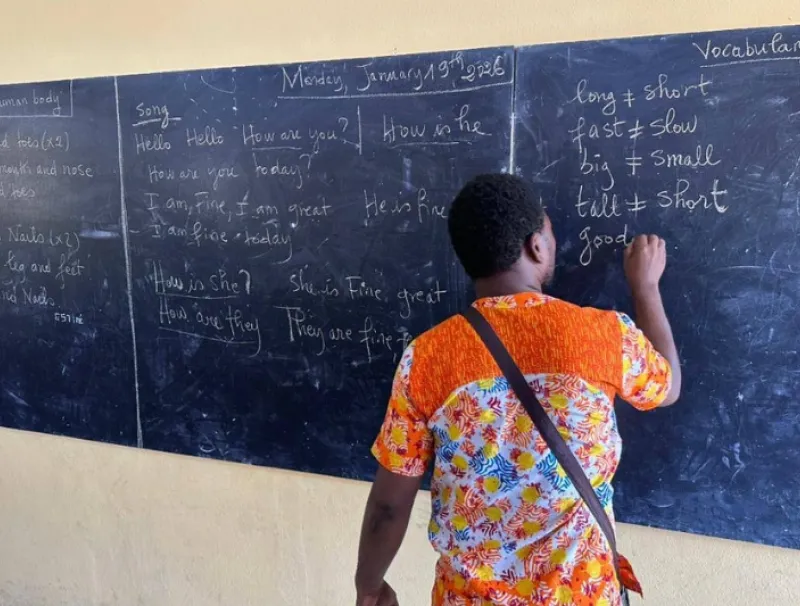 Human body
d toes (x2)
mouth and nose
d toes
Nails (x2)
leg and feet
and Nails
Monday, January 19th, 2026
Song
Hello Hello How are you? How is he
How are you today?
I am, Fine, I am great He is fine
I am fine today
How is she? She is Fine, great
How are they They are fine,
Vocabular
long ≠ short
fast ≠ slow
big ≠ small
tall ≠ short
good